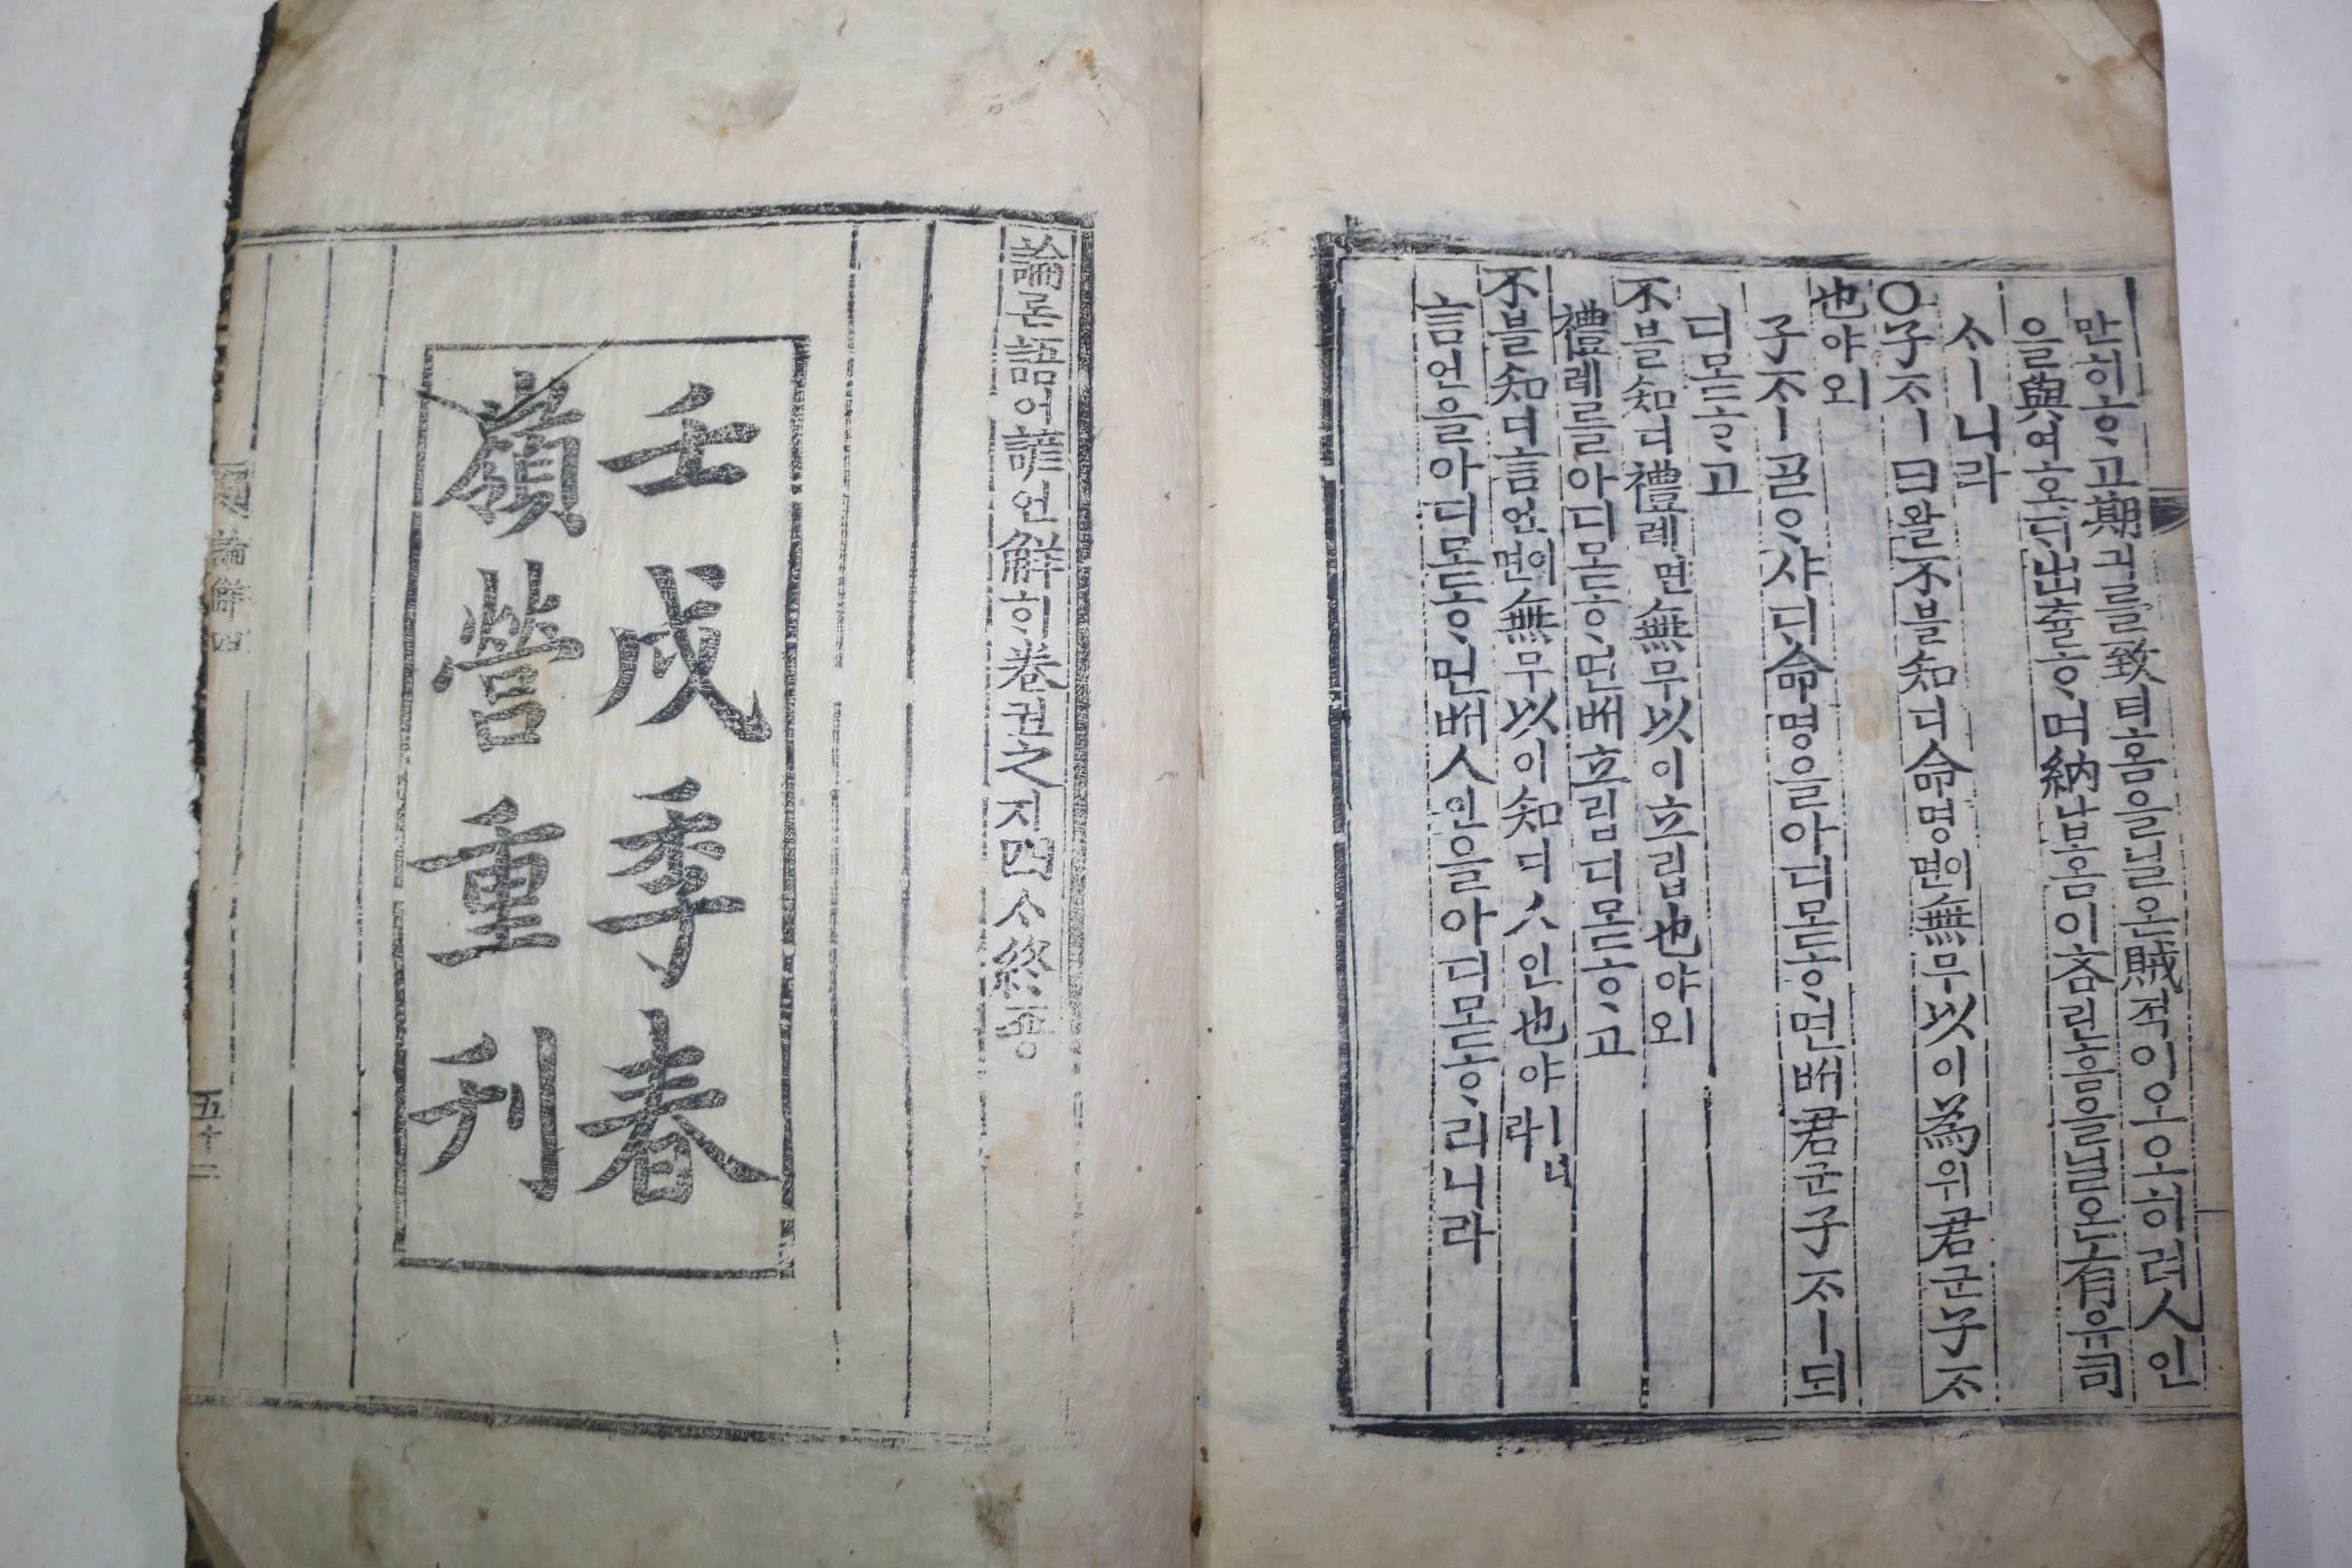 만히ᄒᆞ고期긔를致티홈을닐온賊적이오오히려人인
을與여호ᄃᆡ出츌ᄒᆞ며納납홈이吝린홈을닐온有유司
ᄉᆞㅣ니라
○子ᄌᆞㅣ曰왈不블知디命명이면無무以이爲위君군子ᄌᆞ
也야오
子ᄌᆞㅣᄀᆞᆯᄋᆞ샤ᄃᆡ命명을아디몯ᄒᆞ면ᄡᅥ君군子ᄌᆞㅣ되
디몯ᄒᆞ고
不블知디禮례면無무以이立립也야오
禮례를아디몯ᄒᆞ면ᄡᅥ立립디몯ᄒᆞ고
不블知디言언이면無무以이知디人인也야ㅣ니라
言언을아디몯ᄒᆞ면ᄡᅥ人인을아디몯ᄒᆞ리니라
論론語어諺언解ᄒᆡ卷권之지四ᄉᆞ終죵
壬戌季春
嶺營重刊
論解四
五十二